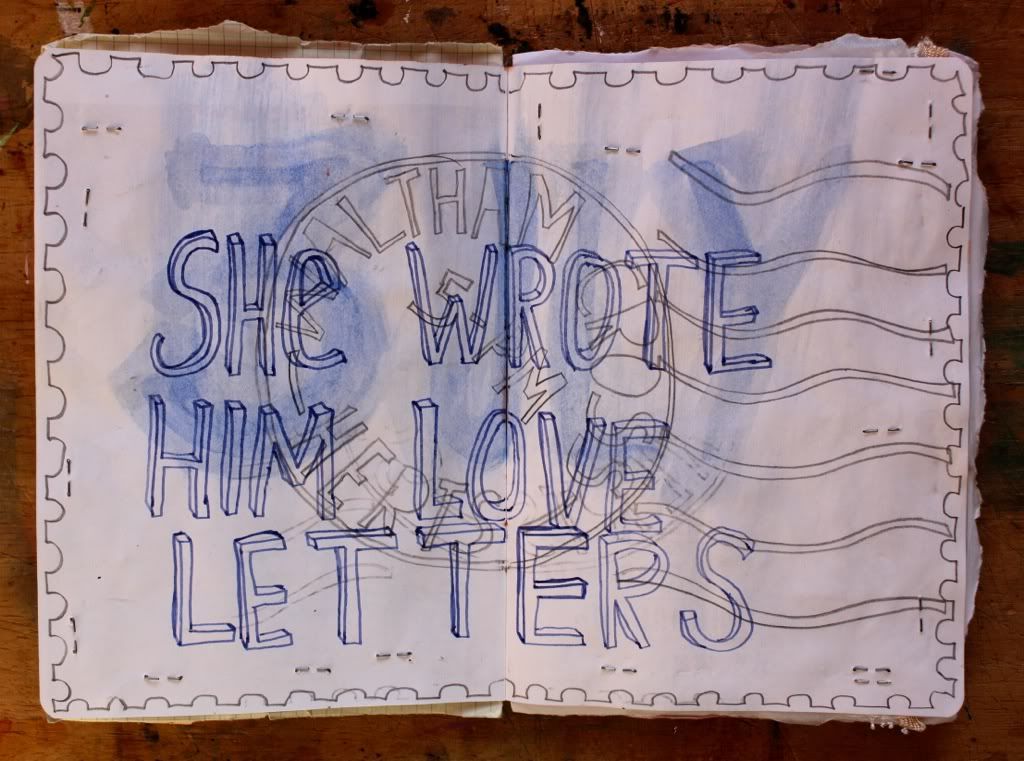 SHE WROTE
HIM LOVE
LETTERS